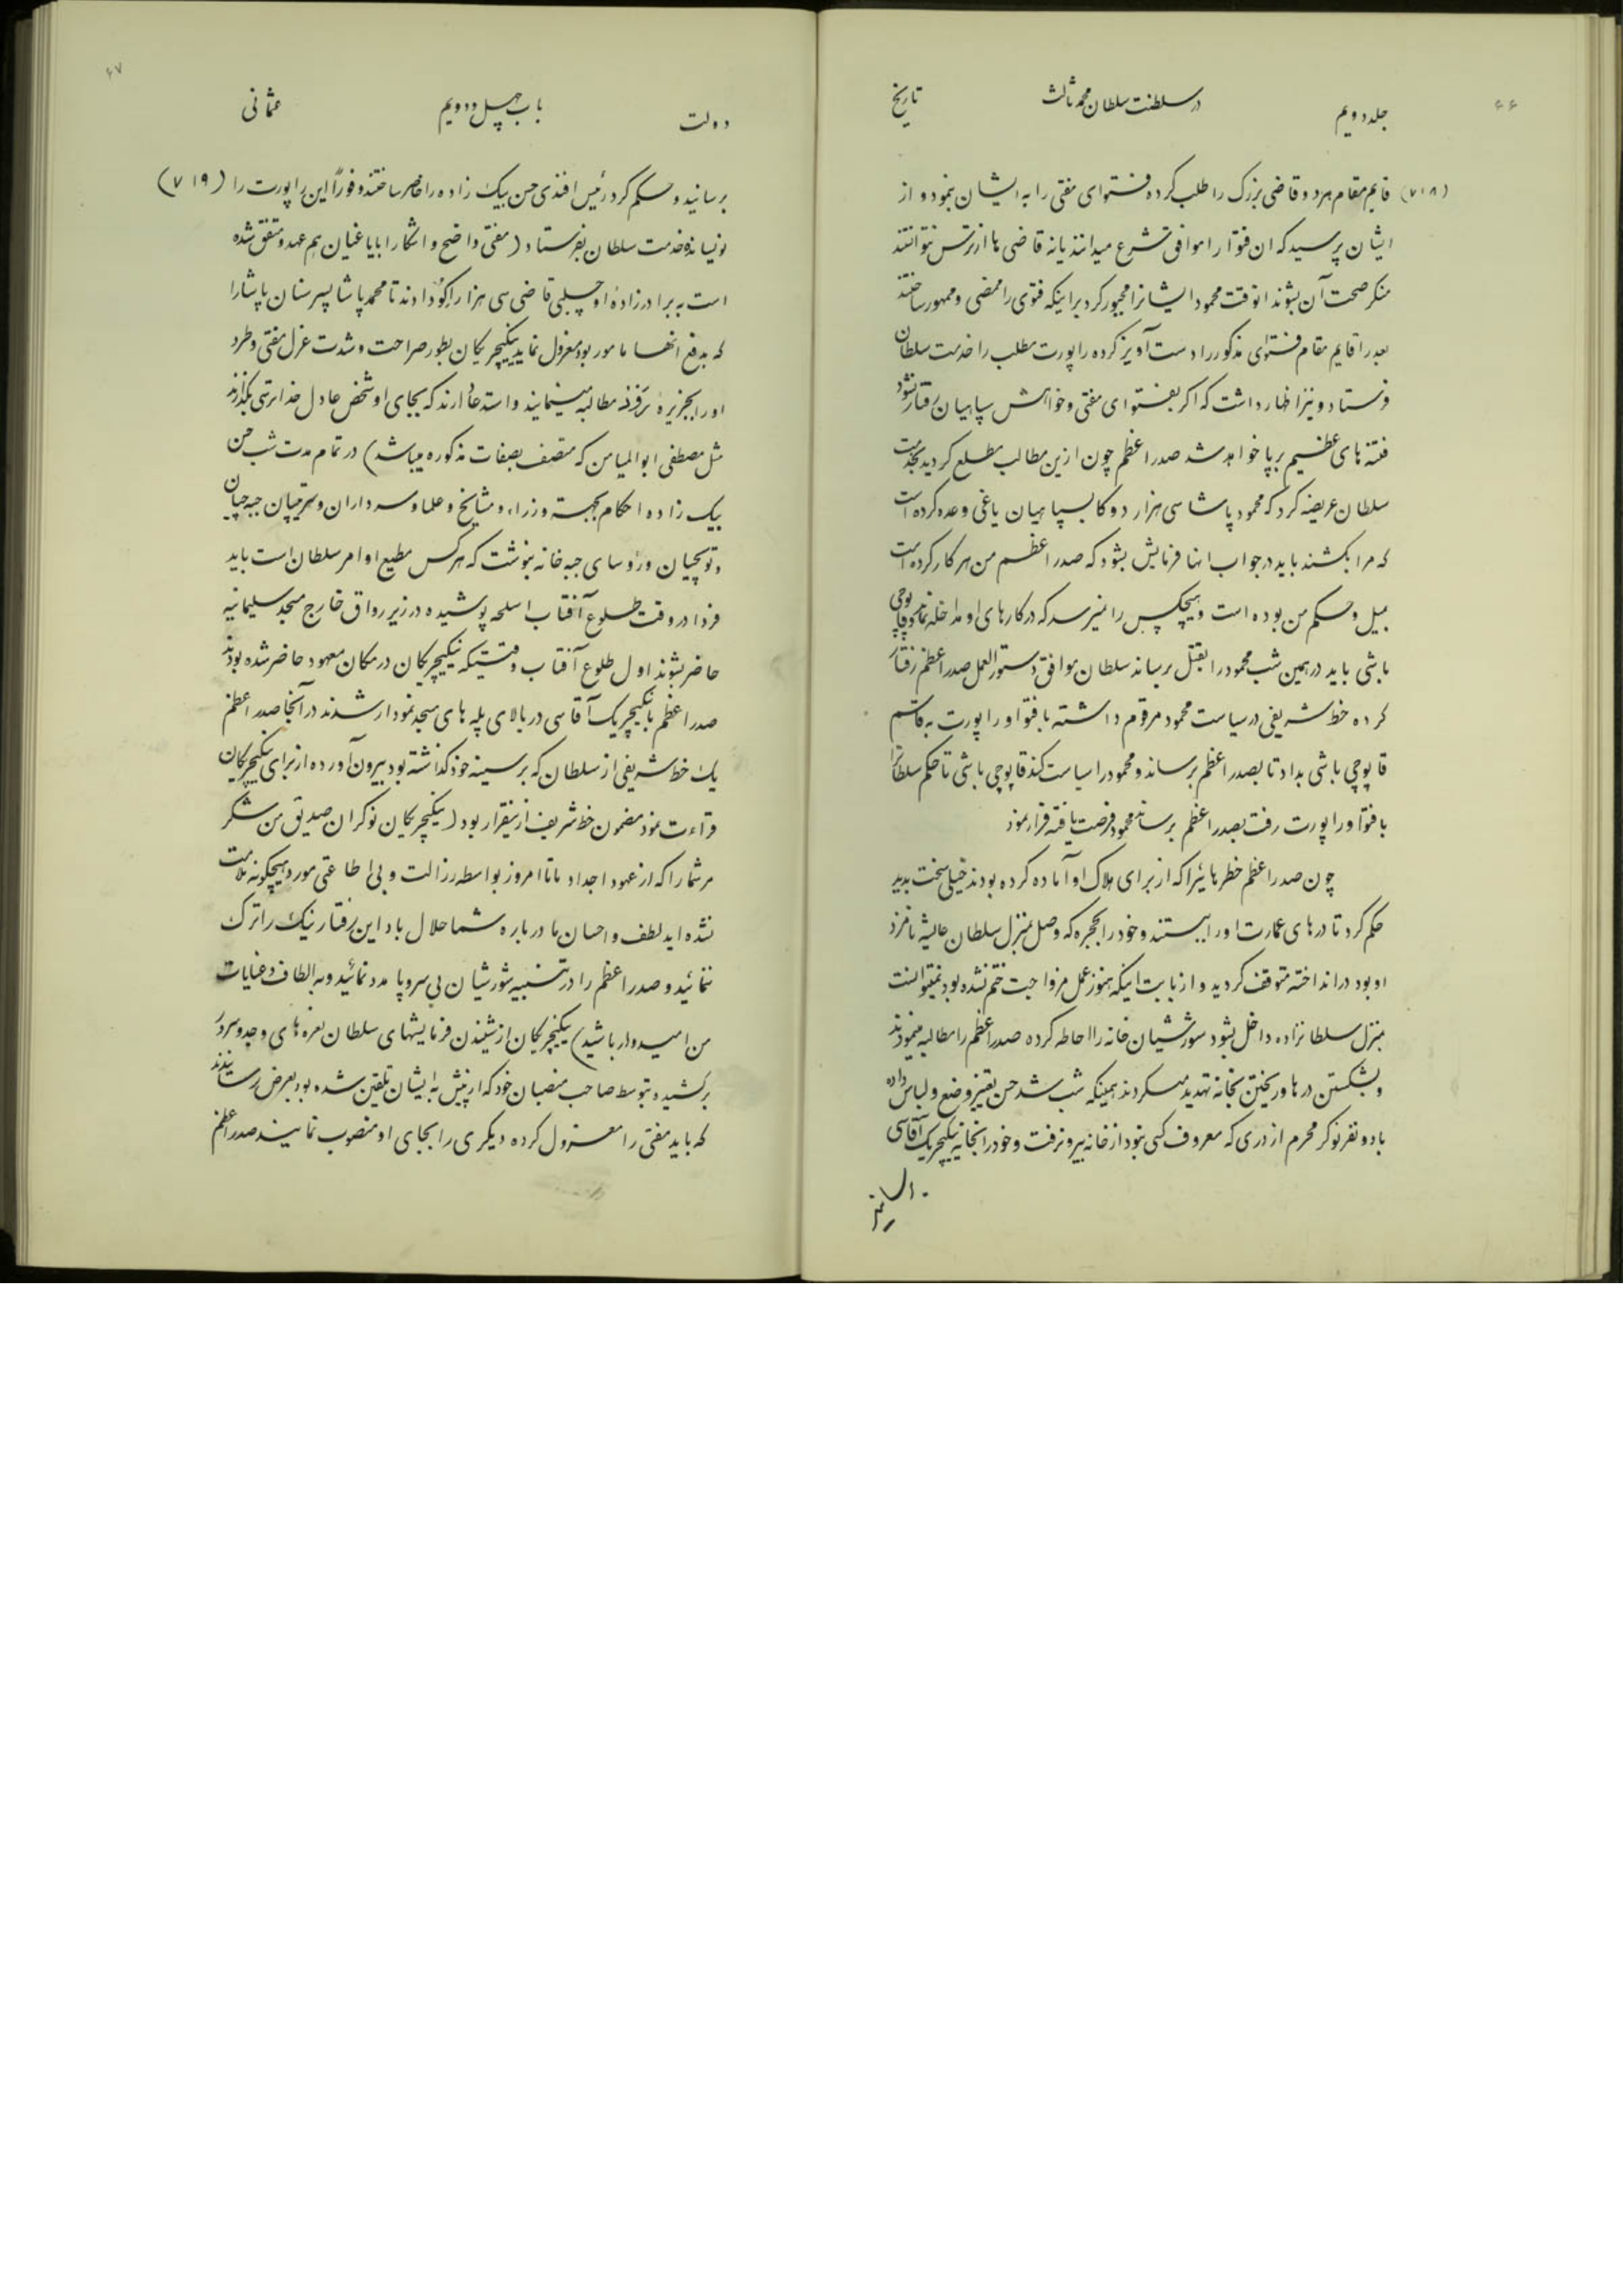 جلد دویم در سلطنت سلطان محمد ثالث تاریخ
(۷۱۸) قایم مقام مزد و قاضی بزرک را طلب کرده فتوای مفتی را به ایشان بنمود و از
ایشان پرسید که ان فتوا را موافق شرع میدانند یا نه قاضی ها از ترس نتوانستند
منکر صحت آن بشوند انوقت محمود ایشانرا مجبور کرد براینکه فتوی را ممضی و ممهور ساختند
بعد را قایم مقام فتوای مذکور را دست آویز کرده راپورت مطلب را خدمت سلطان
فرستاد و نیز اظهار داشت که اکر بفتوای مفتی و خواهش سپاهیان رفتار نشود
فتنه های عظیم برپا خواهد شد صدراعظم چون ازین مطالب مطلع کردید بخدمت
سلطان عریضه کرد که محمود پاشا سی هزار دوکا بسپاهیان یاغی وعده کرده است
که مرا بکشند باید در جواب انها فرمایش بشود که صدراعظم من هر کار کرده است
بمیل و حکم من بوده است و هیچکس را نمیرسد که در کارهای او مداخله نماید و قاپوچی
باشی باید در همین شب محمود را بقتل برساند سلطان موافق دستورالعمل صدراعظم رفتار
کرده خط شریفی در سیاست محمود مرقوم داشته با فتوا و راپورت به قاسم
قاپوچی باشی بداد تا بصدراعظم برساند و محمود را سیاست کند قاپوچی باشی تا حکم سلطانرا
با فتوا و راپورت رفت بصدراعظم برساند محمود فرصت یافته فرار نمود
چون صدراعظم خطرهائیرا که از برای هلاک او آماده کرده بودند خیلی سخت بدید
حکم کرد تا درهای عمارت او را ببستند و خود را بحجره که وصل بمنزل سلطان عایشه نامزد
او بود در انداخته متوقف کردید و از بابت اینکه هنوز عمل مزواجت ختم نشده بود نمیتوانست
بمنزل سلطانزاده داخل بشود شورشیان خانه را احاطه کرده صدراعظم را مطالبه مینمودند
و بشکستن درها و ریختن بخانه تهدید میکردند همینکه شب شد حسن تغییر وضع و لباس داده
با دو نفر نوکر محرم از دری که معروف کسی نبود از خانه بیرون رفت و خود را بخانه ینکیچریک آقاسی
دولت باب چهل و دویم عثمانی
برسانید و حکم کرد رئیس افندی حسن بیک زاده را حاضر ساختند و فوراً این راپورت را (۷۱۹)
نویسانده خدمت سلطان بفرستاد (مفتی واضح و اشکارا با یاغیان هم عهد و متفق شده
است به برادر زاده او چلبی قاضی سی هزار اکو دادند تا محمد پاشا پسر سنان پاشا را
که بدفع انها مامور بود معزول نماید ینکیچریکان بطور صراحت و شدت عزل مفتی و طرد
او را بجزیره مطالبه مینمایند و استدعا دارند که بجای او شخص عادل خداترسی بکذارند
مثل مصطفی ابوالمیامن که متصف بصفات مذکوره میباشد) در تمام مدت شب حسن
بیک زاده احکام بجهته وزراء و مشایخ و علما و سرداران و سرتیپان جبه چیان
و توپچیان و رؤسای جبه خانه بنوشت که هر کس مطیع اوامر سلطان است باید
فردا در وقت طلوع آفتاب اسلحه پوشیده در زیر رواق خارج مسجد سلیمانیه
حاضر بشوند اول طلوع آفتاب وقتیکه ینکیچریکان در مکان معهود حاضر شده بودند
صدراعظم با ینکیچریک آقاسی در بالای پله های مسجد نمودار شدند در آنجا صدراعظم
یک خط شریفی از سلطان که بر سینه خود کذاشته بود بیرون آورده از برای ینکیچریکان
قراءت نمود مضمون خط شریف ازینقرار بود (ینکیچریکان نوکران صدیق من شکر
مر شما را که از عهود اجداد ما تا امروز بواسطه رزالت و بی اطاعتی مورد هیچکونه ملامت
نشده اید لطف و احسان ما درباره شما حلال باد این رفتار نیک را ترک
ننمائید و صدراعظم را در تنبیه شورشیان بی سروپا مدد نمائید و به الطاف و عنایات
من امیدوار باشید) ینکیچریکان از شنیدن فرمایشهای سلطان نعره های وجد و سرور
برکشیده بتوسط صاحب منصبان خود که از پیش به ایشان تلقین شده بود بعرض رسانیدند
که باید مفتی را معزول کرده دیکری را بجای او منصوب نمایند صدراعظم